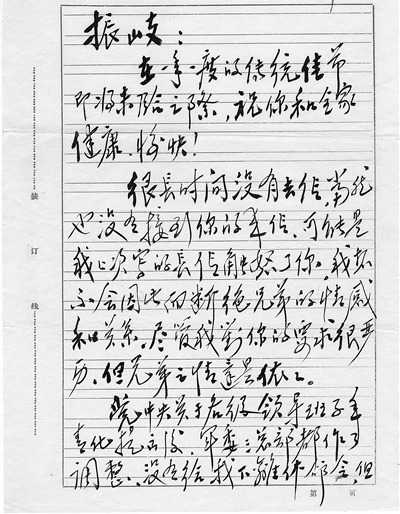 振岐：
在一年一度的传统佳节
即将来临之际，祝你和全家
健康、愉快！
很長时间没有去信，当然
也没有接到你的来信，可能是
我上次写的長信触怒了你。我想
不会因此而断绝兄弟的情感
和关系，尽管我對你的要求很严
厉，但兄弟之情還是依依。
党中央关于各级领导班子年
青化提出后，军委三总部都作了
调整，没有给我下離休命令，但
装
订
线
第 页